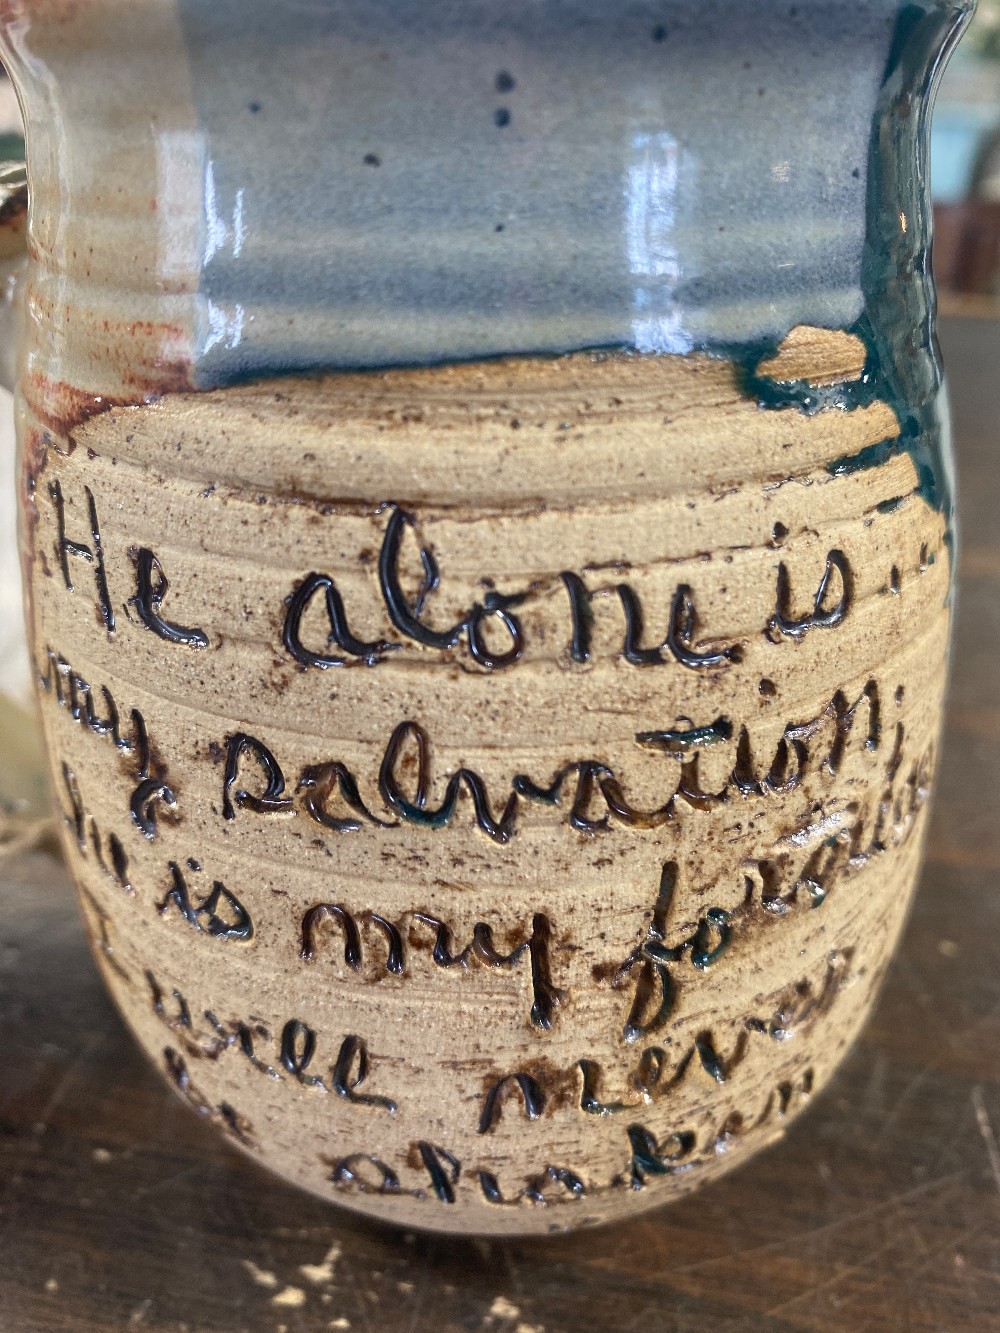 He alone is
my salvation;
he is my fortress
I will never
be shaken